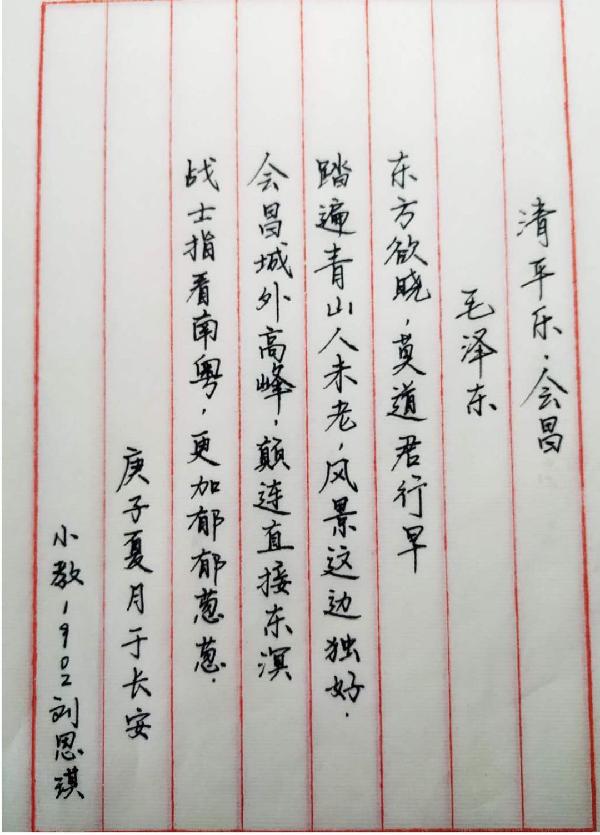 清平乐·会昌
毛泽东
东方欲晓,莫道君行早
踏遍青山人未老,风景这边独好.
会昌城外高峰,颠连直接东溟
战士指看南粤,更加郁郁葱葱.
庚子夏月于长安
小教1902刘思琪